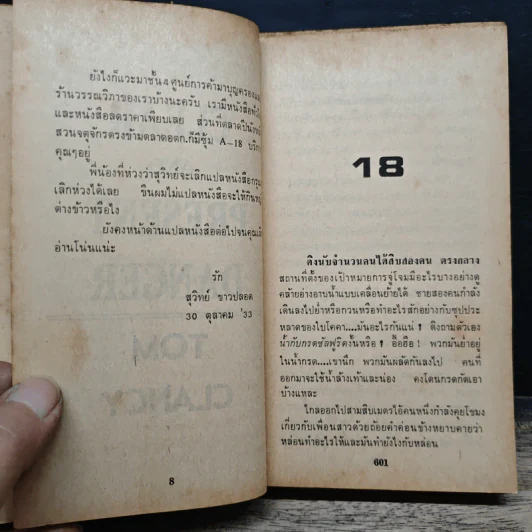 ยังไงก็แวะมาชั้น 4 ศูนย์การค้ามาบุญครอง
ร้านวรรณวิภาของเราบ้างนะครับ เรามีหนังสือ
และหนังสือลดราคาเพียบเลย ส่วนที่ตลาดปีน
สวนจตุจักรตรงข้ามตลาดอตก.ก็มีซุ้ม A–18
คุณๆอยู่
พี่น้องที่ห่วงว่าสุวิทย์จะเลิกแปลหนังสือ
เลิกห่วงได้เลย ขืนผมไม่แปลหนังสือจะให้
ต่างข้าวหรือไง
ยังคงหน้าด้านแปลหนังสือต่อไปจน
อ่านโน่นแน่ะ
รัก
สุวิทย์ ขาวปลอด
30 ตุลาคม '33
DANGER
TOM
CLANCY
8
18
ดิงนับจำนวนคนได้สิบสองคน ตรงกลาง
สถานที่ตั้งของเป้าหมายการจู่โจมมีอะไรบางอย่างดู
คล้ายอ่างอาบน้ำแบบเคลื่อนย้ายได้ ชายสองคนกำลัง
เดินลงไปย่ำหรือกวนหรือทำอะไรสักอย่างกับซุปประ
หลาดของใบโคคา....มันอะไรกันแน่ ! ดิงถามตัวเอง
น้ำกับกรดซัลฟูริคงั้นหรือ ! อี๋อี๋ฮือ ! พวกมันย่ำอยู่
ในน้ำกรด....เขานึก พวกมันผลัดกันลงไป คนที่
ออกมาจะใช้น้ำล้างเท้าและน่อง คงโดนกรดกัดเอา
บ้างแหละ
ไกลออกไปสามสิบเมตรไอ้คนหนึ่งกำลังคุยโขมง
เกี่ยวกับเพื่อนสาวด้วยถ้อยคำค่อนข้างหยาบคายว่า
หล่อนทำอะไรให้และมันทำยังไงกับหล่อน
601